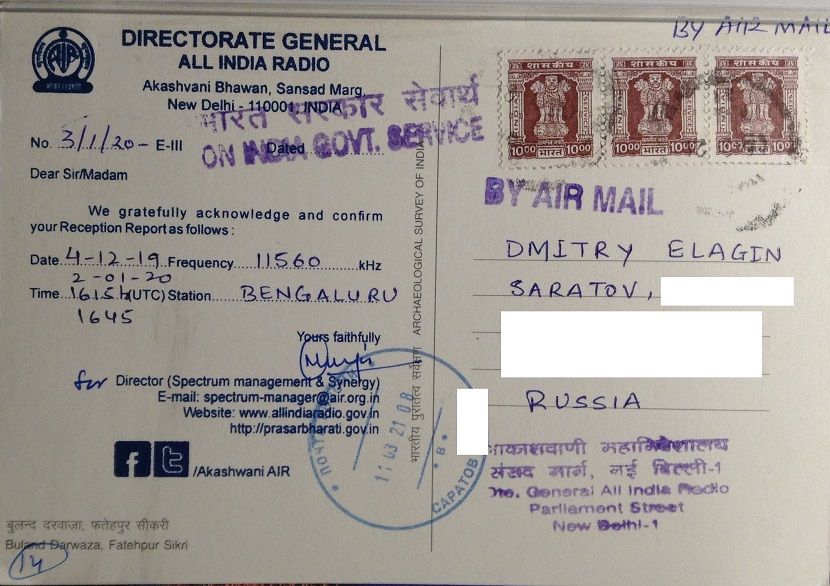 DIRECTORATE GENERAL
ALL INDIA RADIO
Akashvani Bhawan, Sansad Marg,
New Delhi - 110001, INDIA
भारत सरकार सेवार्थ
ON INDIA GOVT. SERVICE
No. 3/1/20- E-III Dated
Dear Sir/Madam
We gratefully acknowledge and confirm
your Reception Report as follows :
Date 4-12-19 Frequency 11560 kHz
2-01-20
Time 1615h (UTC) Station BENGALURU
1645
Yours faithfully
for Director (Spectrum management & Synergy)
E-mail: spectrum-manager@air.org.in
Website: www.allindiaradio.gov.in
http://prasarbharati.gov.in
f t /Akashwani AIR
बुलन्द दरवाजा, फतेहपुर सीकरी
Buland Darwaza, Fatehpur Sikri
14
भारतीय पुरातत्व सर्वेक्षण ARCHAEOLOGICAL SURVEY OF INDIA
BY AIR MAIL
शासकीय शासकीय शासकीय
1000 भारत 1000 1000 भारत 1000 1000 भारत 1000
BY AIR MAIL
DMITRY ELAGIN
SARATOV,
RUSSIA
11 03 21 08
* В *
САРАТОВ
आकाशवाणी महानिदेशालय
संसद मार्ग, नई दिल्ली-1
Dte. General All India Radio
Parliament Street
New Delhi-1